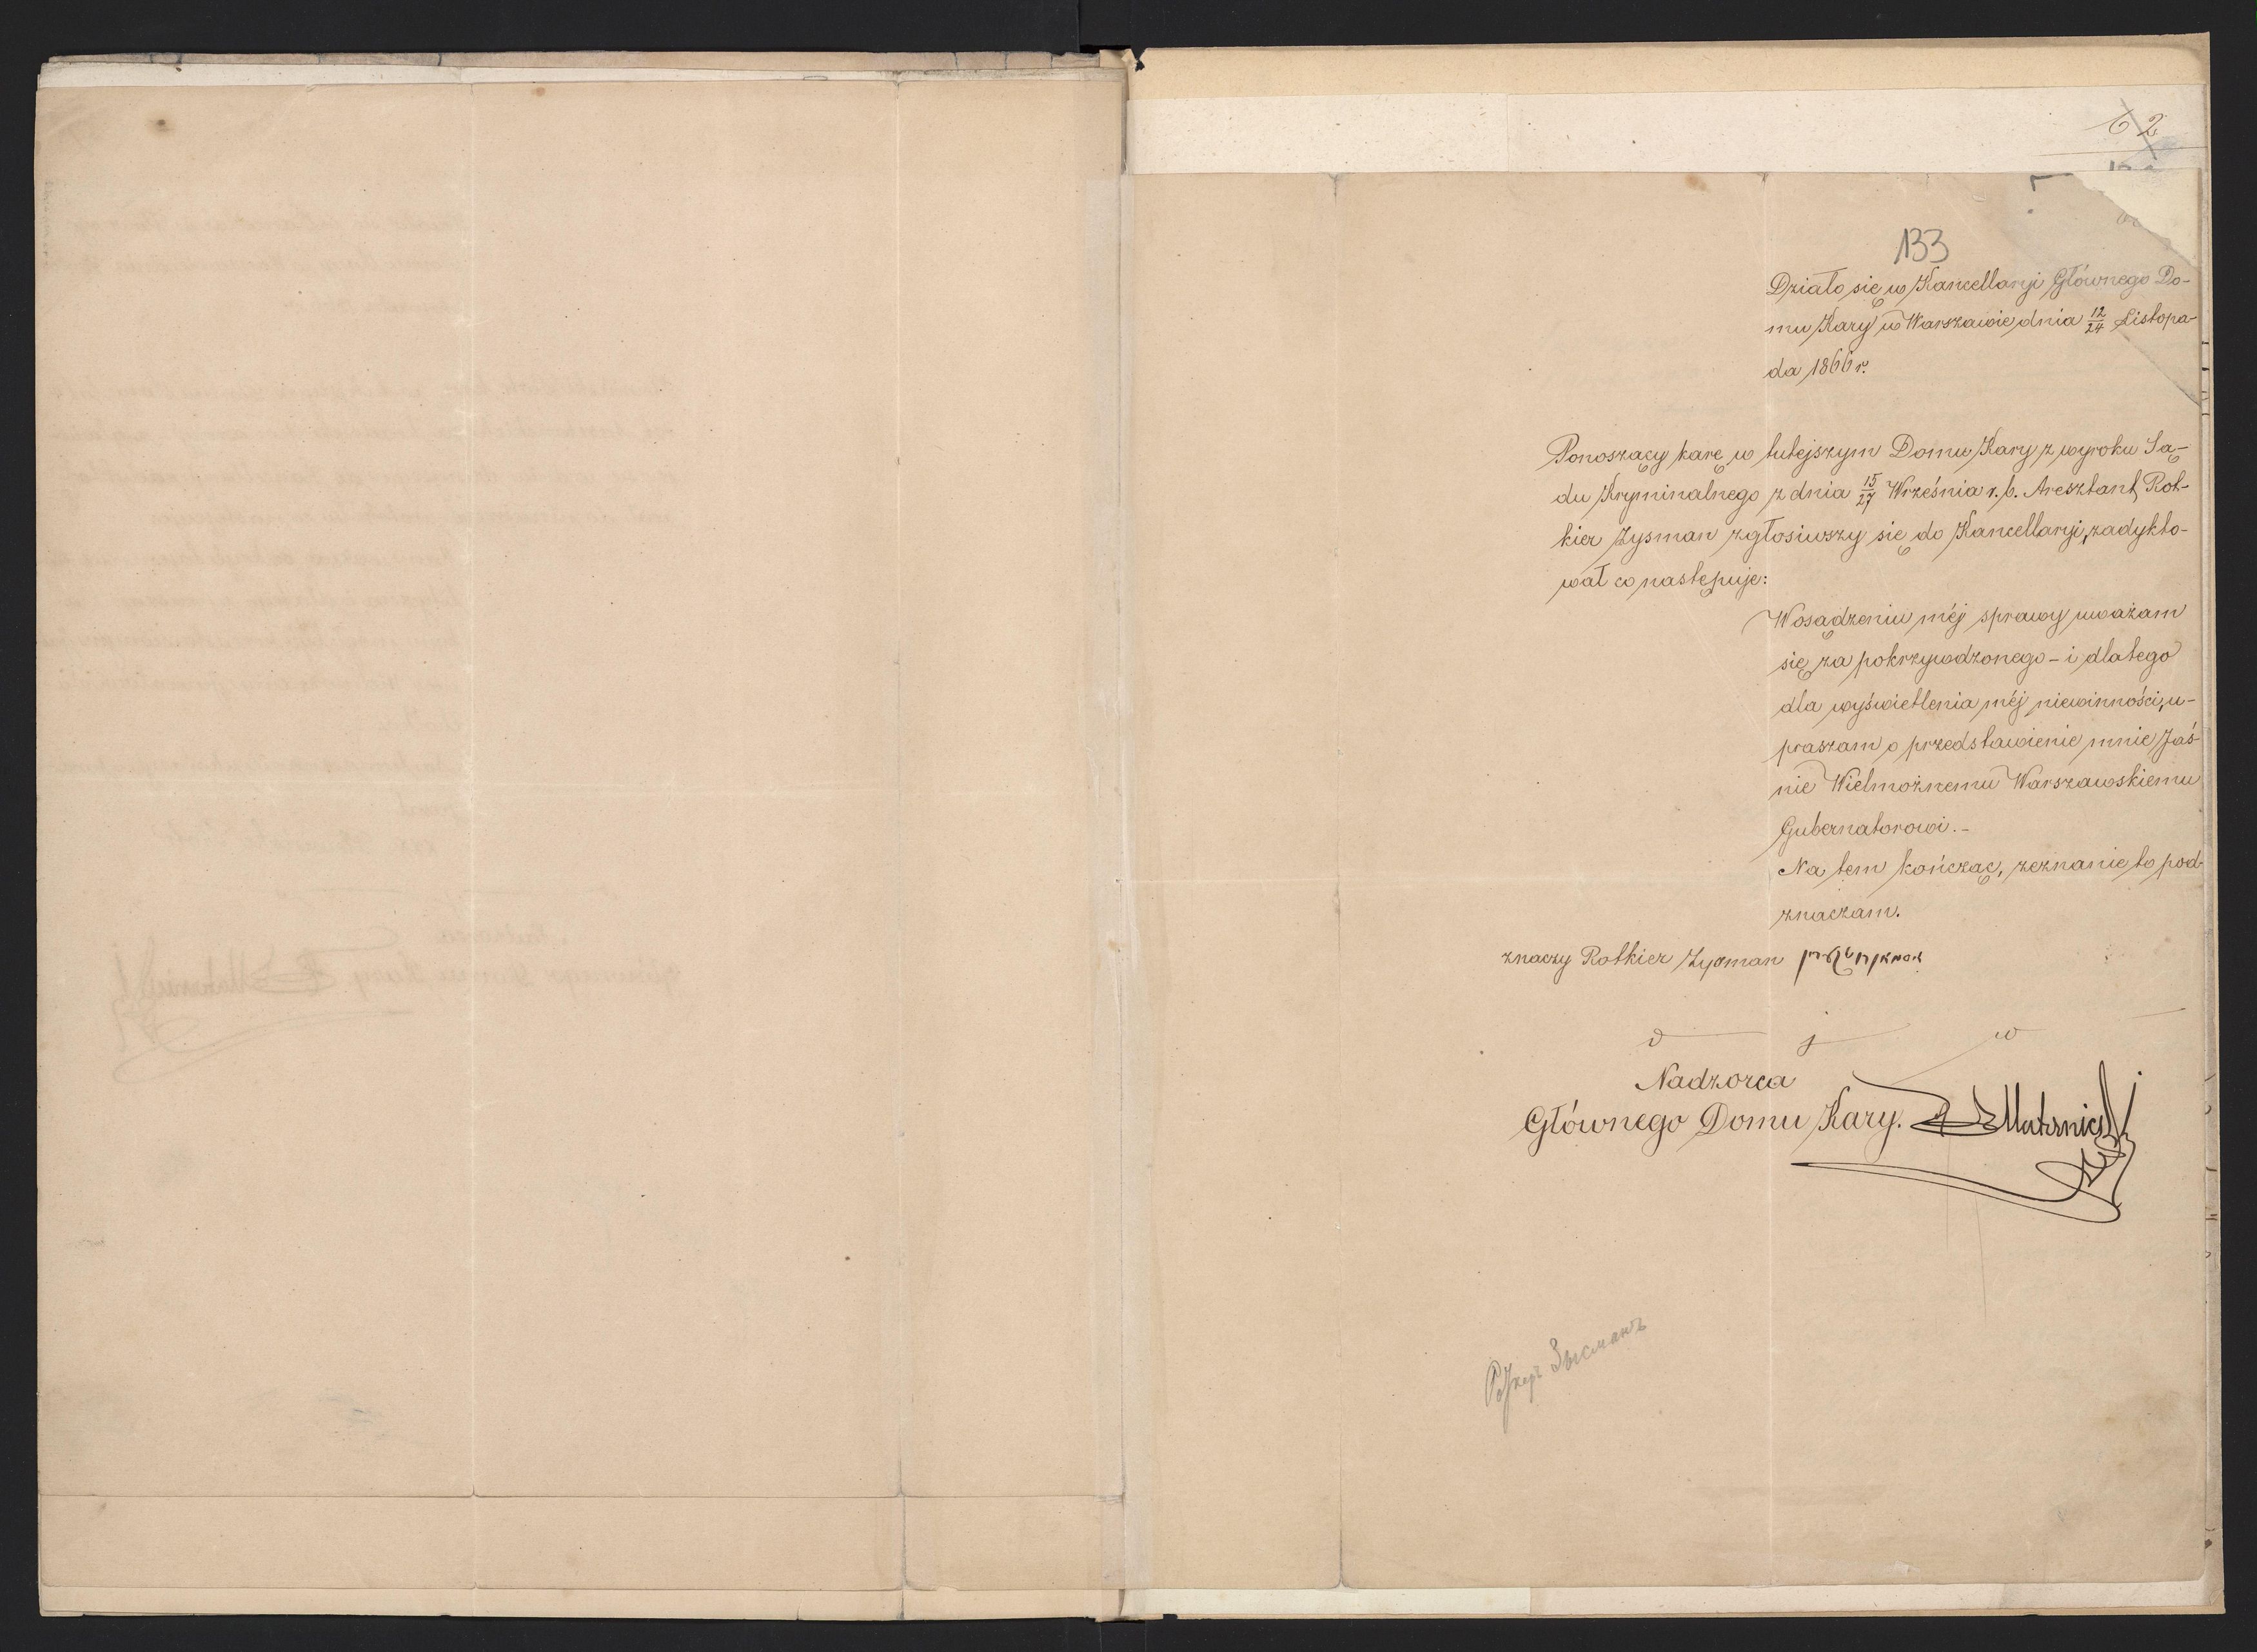 62
133
Działo się w Kancellaryi Głównego Do-
mu Kary w Warszawie dnia 12/24 Listopa-
da 1866 r.
Ponoszący karę w tutejszym Domu Kary z wyroku Są-
du Kryminalnego z dnia 15/27 Września r. b. Aresztant Rot-
kier Zysman zgłosiwszy się do Kancellaryi, zadykto-
wał co nastepuje:
W osądzeniu méj sprawy uważam
się za pokrzywdzonego – i dlatego
dla wyświetlenia méj niewinności, u-
praszam o przedstawienie mnie Jaś-
nie Wielmożnemu Warszawskiemu
Gubernatorowi. –
Na tem kończąc, zeznanie to pod-
znaczam.
znaczy Rotkier Zysman
d j w
Nadzorca
Głównego Domu Kary.
Роткеръ Зысманъ